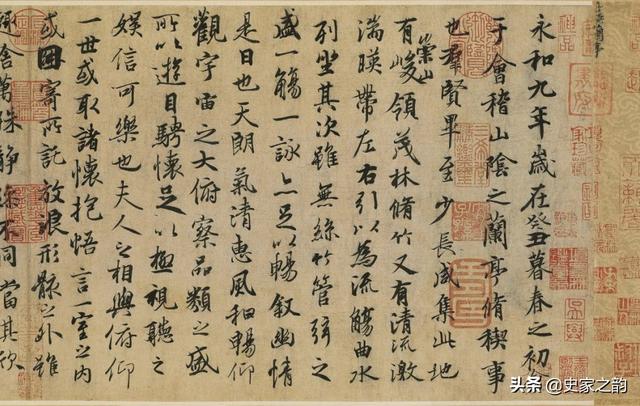 永和九年歲在癸丑暮春之初
于會稽山陰之蘭亭脩稧事
也羣賢畢至少長咸集此地
有崇山峻領茂林脩竹又有清流激
湍暎帶左右引以為流觴曲水
列坐其次雖無絲竹管弦之
盛一觴一詠亦足以暢敘幽情
是日也天朗氣清惠風和暢仰
觀宇宙之大俯察品類之盛
所以遊目騁懷足以極視聽之
娛信可樂也夫人之相與俯仰
一世或取諸懷抱悟言一室之內
或因寄所託放浪形骸之外雖
舍萬殊靜躁不同當其欣
头条 @史家之韵